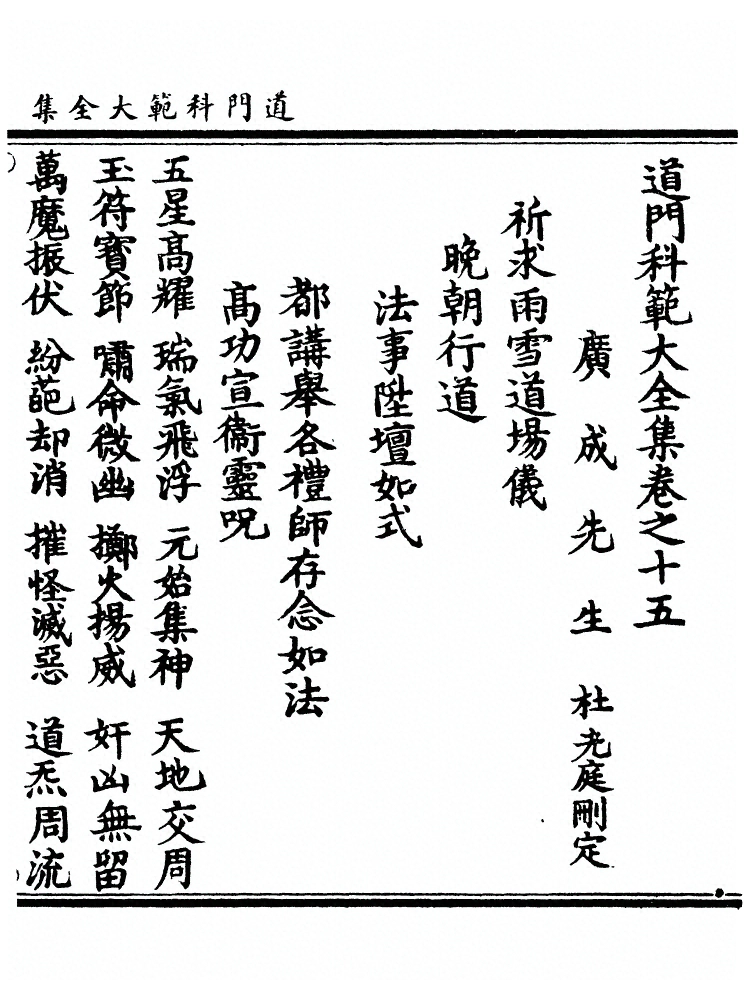 道門科範大全集
道門科範大全集卷之十五
廣成先生杜光庭刪定
祈求雨雪道場儀
晚朝行道
法事陞壇如式
都講舉各禮師存念如法
高功宣衞靈呪
五星高耀 瑞氣飛浮 元始集神 天地交周
玉符寶節 嘯命微幽 擲火揚威 奸凶無留
萬魔振伏 紛葩却消 摧怪滅惡 道炁周流